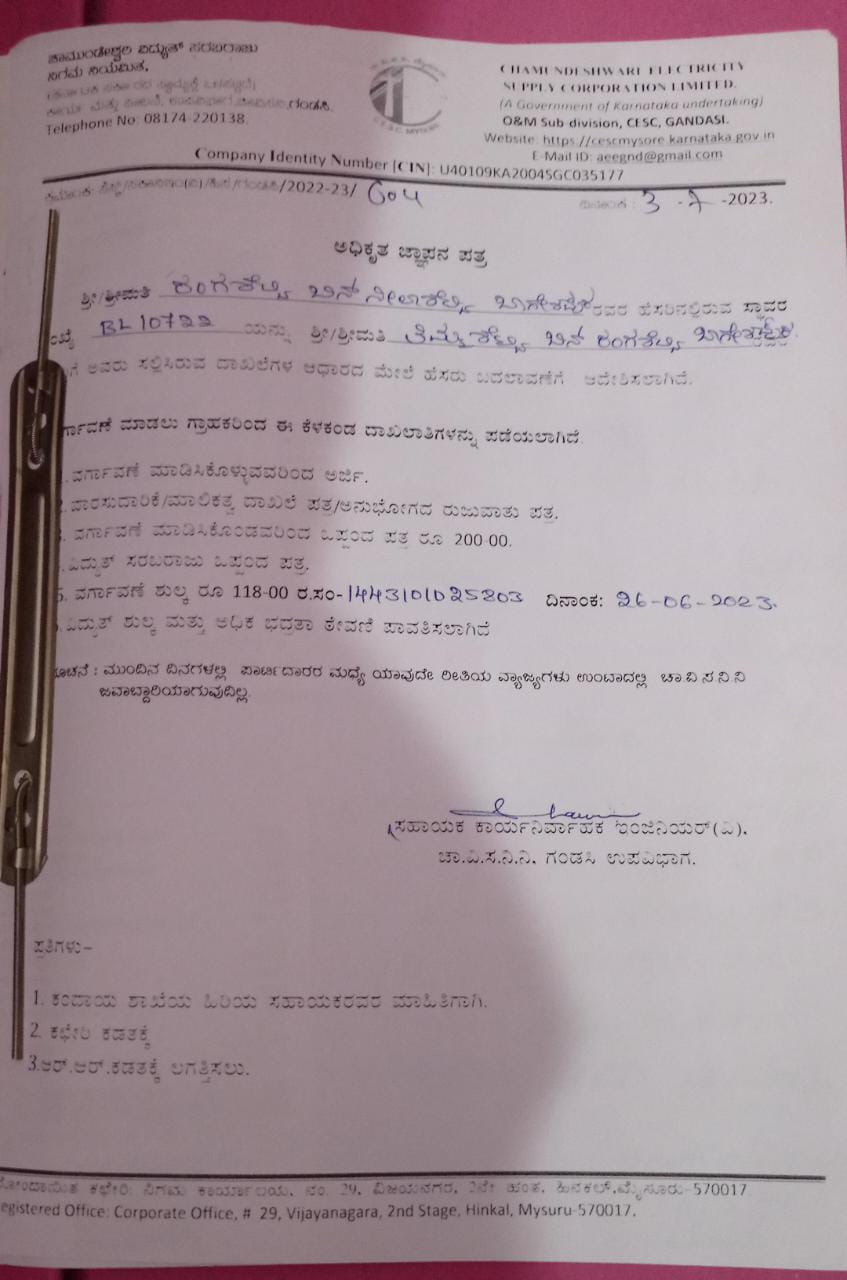 ಚಾಮುಂಡೇಶ್ವರಿ ವಿದ್ಯುತ್ ಸರಬರಾಜು
ನಿಗಮ ನಿಯಮಿತ,
Telephone No: 08174-220138.
CHAMUNDESHWARI ELECTRICITY
SUPPLY CORPORATION LIMITED.
(A Government of Karnataka undertaking)
O&M Sub division, CESC, GANDASI.
Website: https://cescmysore.karnataka.gov.in
E-Mail ID: aeegnd@gmail.com
Company Identity Number [CIN]: U40109KA2004SGC035177
/2022-23/ 604
ದಿನಾಂಕ : 3 -7 -2023.
ಅಧಿಕೃತ ಜ್ಞಾಪನ ಪತ್ರ
ಶ್ರೀ/ಶ್ರೀಮತಿ ರಂಗಶೆಟ್ಟಿ ಬಿನ್ ರವರ ಹೆಸರಿನಲ್ಲಿರುವ ಸ್ಥಾವರ
BL10722 ಯನ್ನು ಶ್ರೀ/ಶ್ರೀಮತಿ ತಿಮ್ಮಶೆಟ್ಟಿ ಬಿನ್ ರಂಗಶೆಟ್ಟಿ
ಅವರು ಸಲ್ಲಿಸಿರುವ ದಾಖಲೆಗಳ ಆಧಾರದ ಮೇಲೆ ಹೆಸರು ಬದಲಾವಣೆಗೆ ಆದೇಶಿಸಲಾಗಿದೆ.
ರ್ಗಾವಣೆ ಮಾಡಲು ಗ್ರಾಹಕರಿಂದ ಈ ಕೆಳಕಂಡ ದಾಖಲಾತಿಗಳನ್ನು ಪಡೆಯಲಾಗಿದೆ.
.ವರ್ಗಾವಣೆ ಮಾಡಿಸಿಕೊಳ್ಳುವವರಿಂದ ಅರ್ಜಿ.
.ವಾರಸುದಾರಿಕೆ/ಮಾಲಿಕತ್ವ ದಾಖಲೆ ಪತ್ರ/ಅನುಭೋಗದ ರುಜುವಾತು ಪತ್ರ.
. ವರ್ಗಾವಣೆ ಮಾಡಿಸಿಕೊಂಡವರಿಂದ ಒಪ್ಪಂದ ಪತ್ರ ರೂ 200-00.
.ವಿದ್ಯುತ್ ಸರಬರಾಜು ಒಪ್ಪಂದ ಪತ್ರ.
5. ವರ್ಗಾವಣೆ ಶುಲ್ಕ ರೂ 118-00 ರ.ಸಂ-1443101025803 ದಿನಾಂಕ: 26-06-2023.
.ವಿದ್ಯುತ್ ಶುಲ್ಕ ಮತ್ತು ಅಧಿಕ ಭದ್ರತಾ ಠೇವಣಿ ಪಾವತಿಸಲಾಗಿದೆ
ೂಚನೆ : ಮುಂದಿನ ದಿನಗಳಲ್ಲಿ ಪಾರ್ಟಿದಾರರ ಮಧ್ಯೆ ಯಾವುದೇ ರೀತಿಯ ವ್ಯಾಜ್ಯಗಳು ಉಂಟಾದಲ್ಲಿ ಚಾ.ವಿ.ಸ.ನಿ.ನಿ
ಜವಾಬ್ದಾರಿಯಾಗುವುದಿಲ್ಲ.
ಸಹಾಯಕ ಕಾರ್ಯನಿರ್ವಾಹಕ ಇಂಜಿನಿಯರ್(ವಿ).
ಚಾ.ವಿ.ಸ.ನಿ.ನಿ. ಗಂಡಸಿ ಉಪವಿಭಾಗ.
ಪ್ರತಿಗಳು-
1. ಕಂದಾಯ ಶಾಖೆಯ ಹಿರಿಯ ಸಹಾಯಕರವರ ಮಾಹಿತಿಗಾಗಿ.
2. ಕಛೇರಿ ಕಡತಕ್ಕೆ
3.ಆರ್.ಆರ್.ಕಡತಕ್ಕೆ ಲಗತ್ತಿಸಲು.
ೋಂದಾಯಿತ ಕಛೇರಿ: ನಿಗಮ ಕಾರ್ಯಾಲಯ, ನಂ. 29, ವಿಜಯನಗರ, 2ನೇ ಹಂತ, ಹಿನಕಲ್,ಮೈಸೂರು-570017
egistered Office: Corporate Office, # 29, Vijayanagara, 2nd Stage, Hinkal, Mysuru-570017.